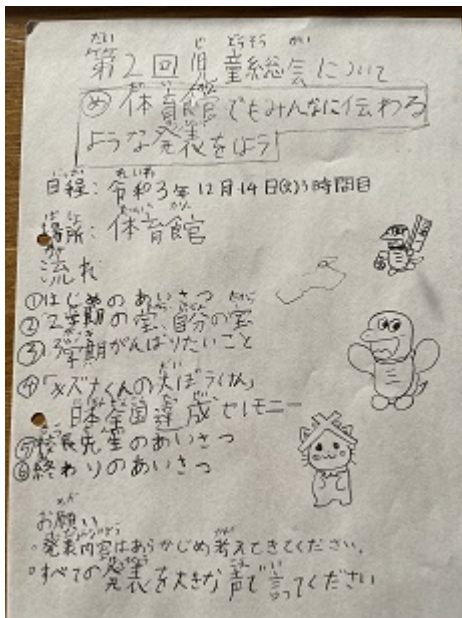 第2回児童総会について
め 体育館でもみんなに伝わる
ような発表をしよう
日程: 令和3年12月14日(火)3時間目
場所: 体育館
流れ
①はじめのあいさつ
②2学期の宝、自分の宝
③3学期がんばりたいこと
④「メズナくんの大ぼうけん」
日本全国達成セレモニー
⑤校長先生のあいさつ
⑥終わりのあいさつ
お願い
・発表内容はあらかじめ考えてきてください。
・すべての発表を大きな声で言ってください